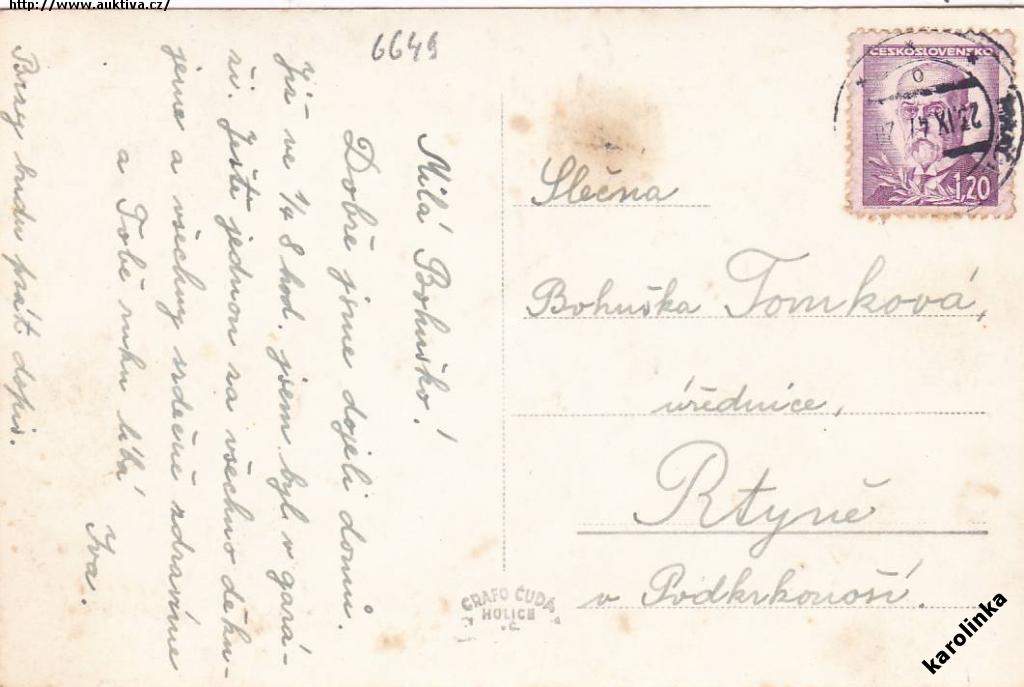 http://www.auktiva.cz/
6649
Milá Bohuško!
Dobře jsme dojeli domů.
Již ve ¼ 8 hod. jsem byl v gará-
ži. Ještě jednou za všechno děku-
jeme a všechny srdečně zdravíme
a Tobě ruku líbá
Iva.
Brzy budu psát dopis.
ČESKOSLOVENSKO
1,20
Slečna
Bohuška Tomková,
úřednice,
Rtyně
v Podkrkonoší.
GRAFO ČUDA
HOLICE
v Č.
karolinka